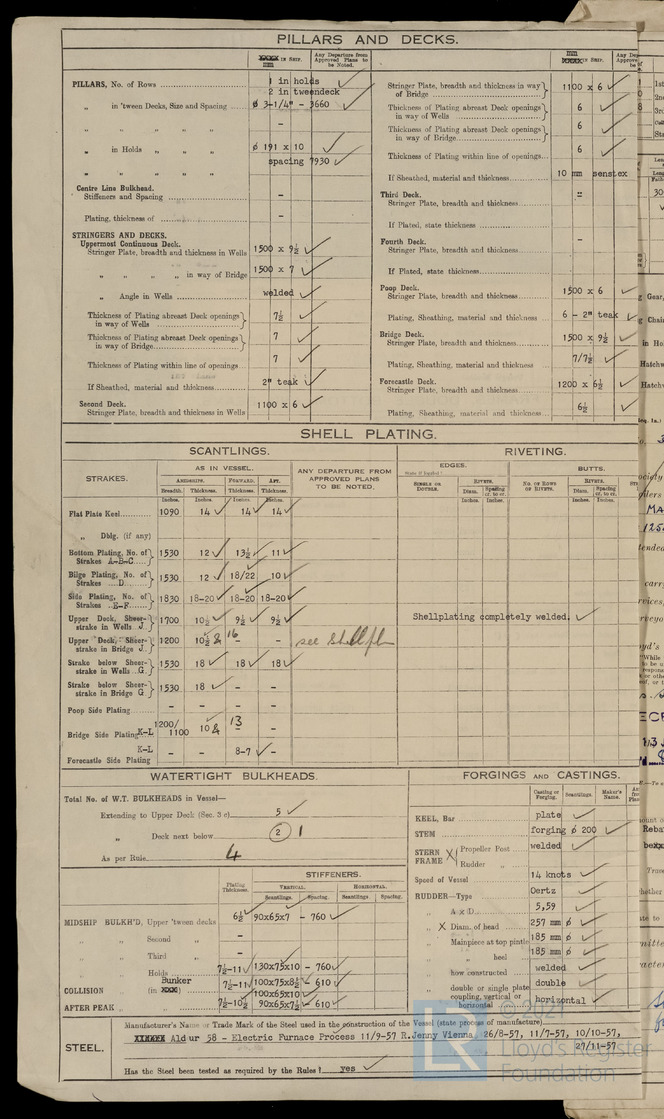 PILLARS AND DECKS.
mm IN SHIP.
Any Departure from Approved Plans to be Noted.
PILLARS, No. of Rows
1 in holds
2 in tweendeck
„ in 'tween Decks, Size and Spacing
ø 3-1/4" - 3660
„ „ „ „
-
„ in Holds „ „
ø 191 x 10
spacing 7930
„ „ „ „
Centre Line Bulkhead.
Stiffeners and Spacing
-
Plating, thickness of
-
STRINGERS AND DECKS.
Uppermost Continuous Deck.
Stringer Plate, breadth and thickness in Wells
1500 x 9½
„ „ „ „ in way of Bridge
1500 x 7
„ Angle in Wells
welded
Thickness of Plating abreast Deck openings in way of Wells
7½
Thickness of Plating abreast Deck openings in way of Bridge
7
Thickness of Plating within line of openings
7
If Sheathed, material and thickness
2" teak
Second Deck.
Stringer Plate, breadth and thickness in Wells
1100 x 6
mm IN SHIP.
Stringer Plate, breadth and thickness in way of Bridge
1100 x 6
Thickness of Plating abreast Deck openings in way of Wells
6
Thickness of Plating abreast Deck openings in way of Bridge
6
Thickness of Plating within line of openings
6
If Sheathed, material and thickness
10 mm senstex
Third Deck.
Stringer Plate, breadth and thickness
-
If Plated, state thickness
Fourth Deck.
Stringer Plate, breadth and thickness
-
If Plated, state thickness
Poop Deck.
Stringer Plate, breadth and thickness
1500 x 6
Plating, Sheathing, material and thickness
6 - 2" teak
Bridge Deck.
Stringer Plate, breadth and thickness
1500 x 9½
Plating, Sheathing, material and thickness
7/7½
Forecastle Deck.
Stringer Plate, breadth and thickness
1200 x 6½
Plating, Sheathing, material and thickness
6½
SHELL PLATING.
SCANTLINGS.
RIVETING.
STRAKES.
AS IN VESSEL.
ANY DEPARTURE FROM APPROVED PLANS TO BE NOTED.
EDGES.
BUTTS.
AMIDSHIPS. FORWARD. AFT.
Breadth. Thickness. Thickness. Thickness.
Inches. Inches. Inches. Inches.
SINGLE OR DOUBLE.
RIVETS.
Diam. Spacing cr. to cr.
Inches. Inches.
No. OF ROWS OF RIVETS.
RIVETS.
Diam. Spacing cr. to cr.
Inches. Inches.
Flat Plate Keel 1090 14 14 14
„ Dblg. (if any)
Bottom Plating, No. of Strakes A-B-C 1530 12 13½ 11
Bilge Plating, No. of Strakes D 1530 12 18/22 10
Side Plating, No. of Strakes E-F 1830 18-20 18-20 18-20
Upper Deck, Sheer-strake in Wells J. 1700 10½ 9½ 9½
Shellplating completely welded.
Upper Deck, Sheer-strake in Bridge J. 1200 10½ & 16 - - see shell pln
Strake below Sheer-strake in Wells G. 1530 18 18 18
Strake below Sheer-strake in Bridge G 1530 18 - -
Poop Side Plating - - - -
Bridge Side Plating K-L 1200/1100 10 & 13 -
K-L
Forecastle Side Plating - - 8-7 -
WATERTIGHT BULKHEADS.
Total No. of W.T. BULKHEADS in Vessel—
Extending to Upper Deck (Sec. 3 c) 5
„ Deck next below 2 1
As per Rule 4
Plating Thickness.
STIFFENERS.
VERTICAL. HORIZONTAL.
Scantlings. Spacing. Scantlings. Spacing.
MIDSHIP BULKH'D, Upper 'tween decks 6½ 90x65x7 - 760
„ „ Second „ -
„ „ Third „ -
„ „ Holds 7½-11 130x75x10 - 760
COLLISION (in Bunker) 7½-11 100x75x8½ - 610
100x65x10
AFTER PEAK „ „ 7½-10½ 90x65x7½ - 610
FORGINGS AND CASTINGS.
Casting or Forging. Scantlings. Maker's Name.
KEEL, Bar plate
STEM forging ø 200
STERN FRAME Propeller Post welded
Rudder „
Speed of Vessel 14 knots
RUDDER—Type Oertz
„ A x D 5,59
„ Diam. of head 257 mm ø
„ Mainpiece at top pintle 185 mm ø
„ „ heel 185 mm ø
„ how constructed welded
„ double or single plate double
„ coupling, vertical or horizontal horizontal
STEEL.
Manufacturer's Name or Trade Mark of the Steel used in the construction of the Vessel (state process of manufacture)
Aldur 58 - Electric Furnace Process 11/9-57 R.Jenny Vienna 26/8-57, 11/7-57, 10/10-57,
27/11-57
Has the Steel been tested as required by the Rules? yes
© 2021
Lloyd's Register
Foundation
LR